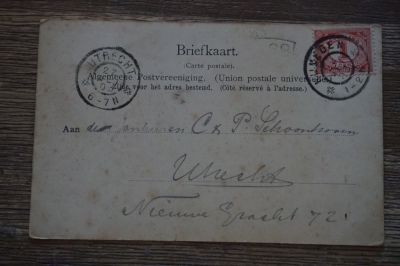 Briefkaart.
(Carte postale).
Algemeene Postvereeniging. (Union postale universelle
Zijde voor het adres bestemd. (Côté réservé à l'adresse.)
UTRECHT
6-7N
Aan de C & P. Schoonhoven
Utrecht
Nieuwe Gracht 72.